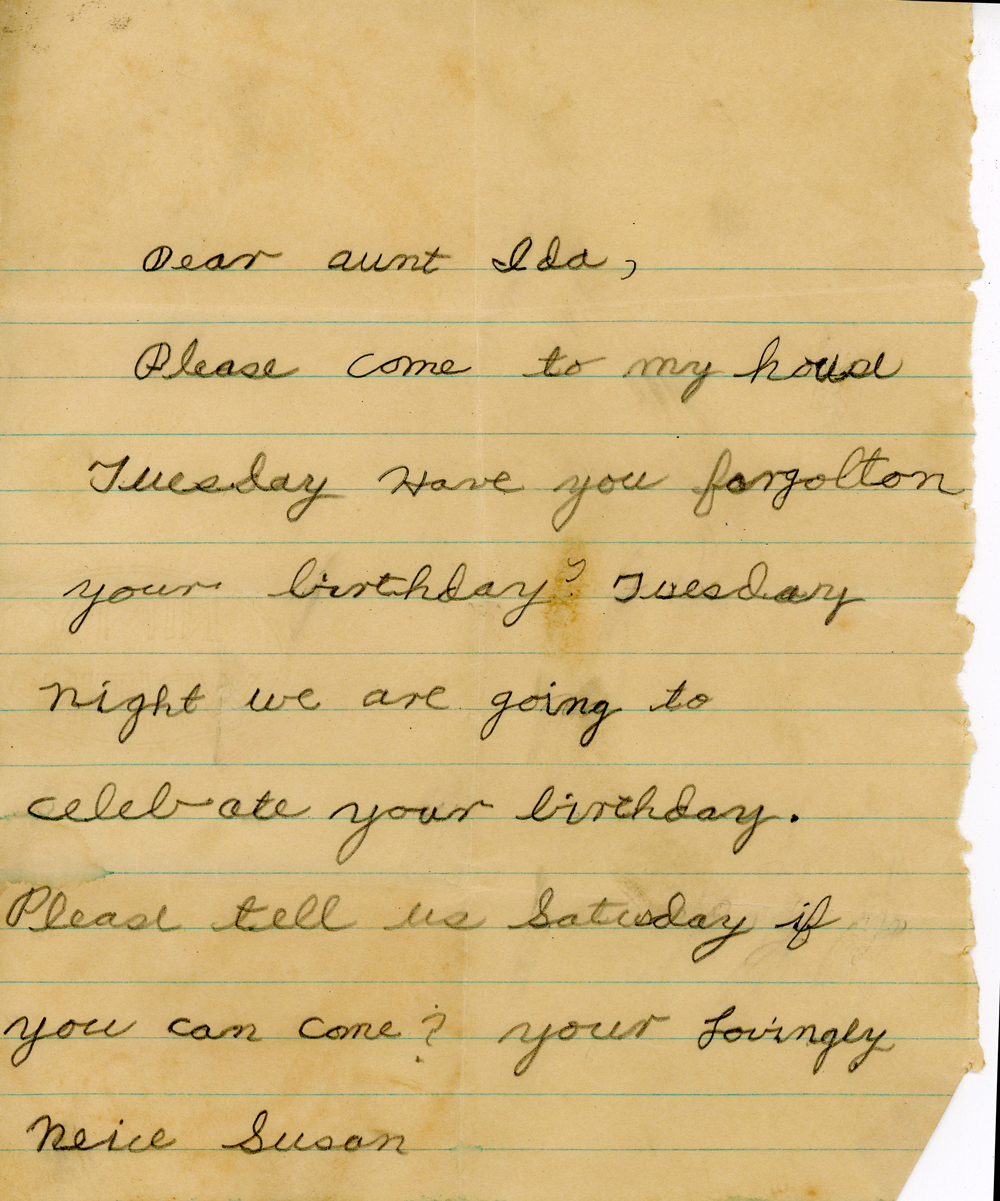 Dear aunt Ida,
Please come to my house
Tuesday Have you forgotton
your birthday? Tuesday
night we are going to
celebrate your birthday.
Please tell us Satuday if
you can come? your Lovingly
Neice Susan